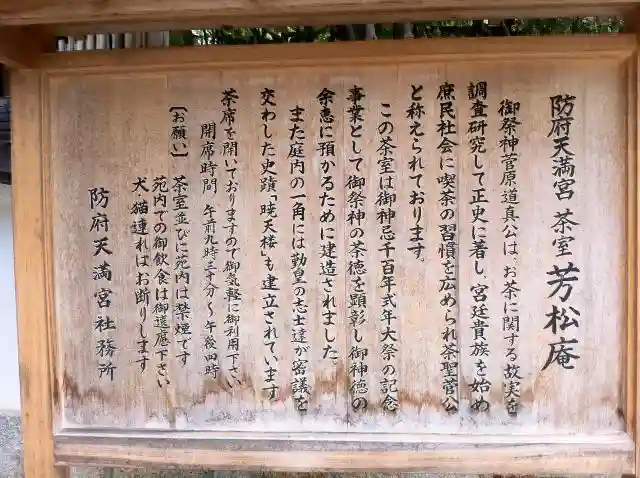 防府天満宮 茶室 芳松庵
御祭神菅原道真公は、お茶に関する故実を
調査研究して正史に著し、宮廷貴族を始め
庶民社会に喫茶の習慣を広められ茶聖菅公
と称えられております。
この茶室は御神忌千百年式年大祭の記念
事業として御祭神の茶徳を顕彰し御神徳の
余恵に預かるために建造されました。
また庭内の一角には勤皇の志士達が密議を
交わした史蹟「暁天楼」も建立されています
茶席を開いておりますので御気軽に御利用下さい
開席時間 午前九時三十分〜午後四時
〔お願い〕 茶室並びに苑内は禁煙です
苑内での御飲食は御遠慮下さい
犬・猫連れはお断りします
防府天満宮社務所